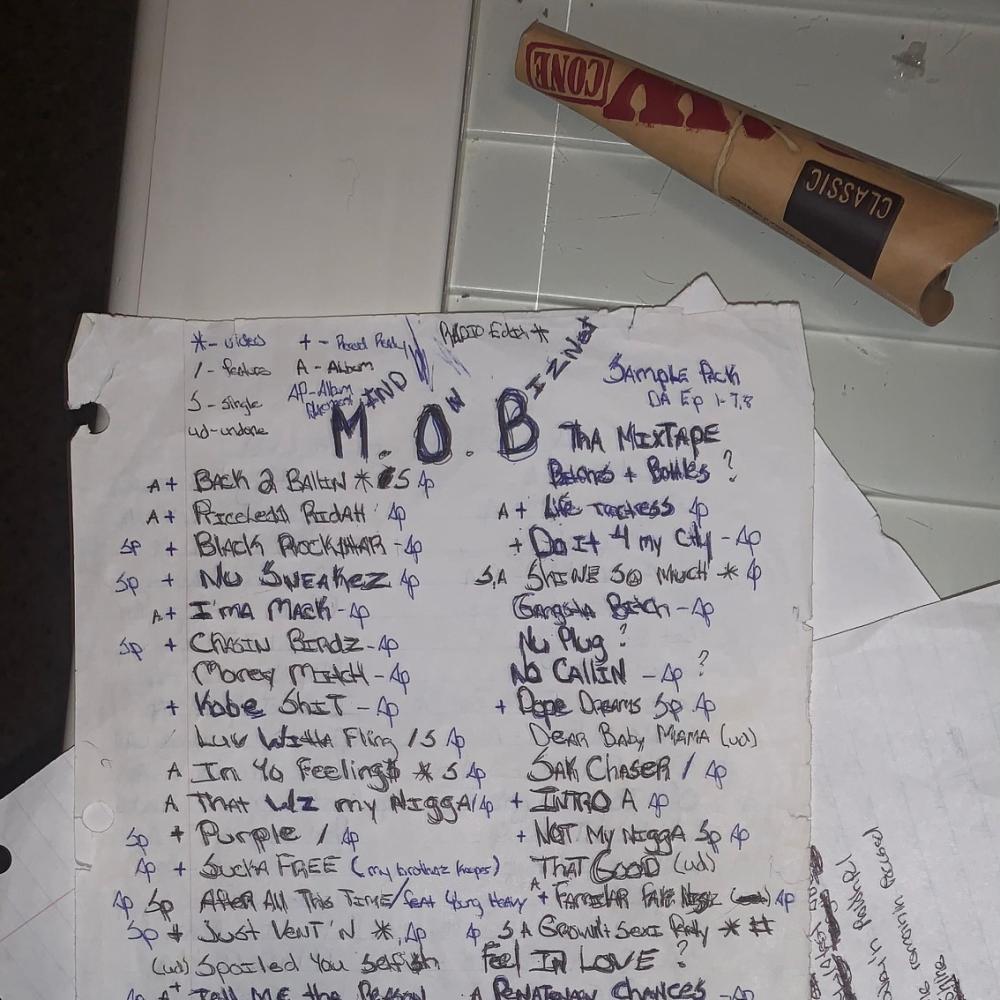 CONE
RAW
CLASSIC
RADIO Edit *
* - video + - Read Ready
/ - feature A - Album
S - single AP - Album
ud - undone
MIND ON BIZNEZ
M. O. B THA MIXTAPE
SAMPLE PACK
DA Ep 1-7,8
A + BACK 2 BALLIN * S Ap
A + Priceless Ridah Ap
Sp + BLACK ROCKSTAR - Ap
Sp + Nu SNEAKEZ Ap
A + I'ma MACK - Ap
Sp + CHASIN BIRDZ - Ap
Money Mitch - Ap
+ Kobe SHIT - Ap
Luv Witha Fling / S Ap
A In Yo Feeling$ * S Ap
A THAT WZ my NIGGA / Ap
Sp + Purple / Ap
Ap + SUCKA FREE (my brotherz keeper)
Ap Sp AFTER ALL THIS TIME / feat Young Heavy
Sp + JUST VENT'N *, Ap
(ud) Spoiled You Selfish
Ap A+ TELL ME the Reason
+ Bottles ?
A + Life Ap
+ Do It 4 my City - Ap
S,A SHINE SO MUCH * Ap
Gangsta Bitch - Ap
Nu Plug ?
NO CALLIN - Ap ?
+ Dope DREAMS Sp Ap
DEAR BABY MAMA (ud)
SAK CHASER / Ap
+ INTRO A Ap
+ NOT My NIGGA Sp Ap
THAT GOOD (ud)
A + FAMILIAR FAKE Ap
Ap S A Grown + Sexi Rmly * #
Feel IN LOVE ?
A CHANCES - Ap